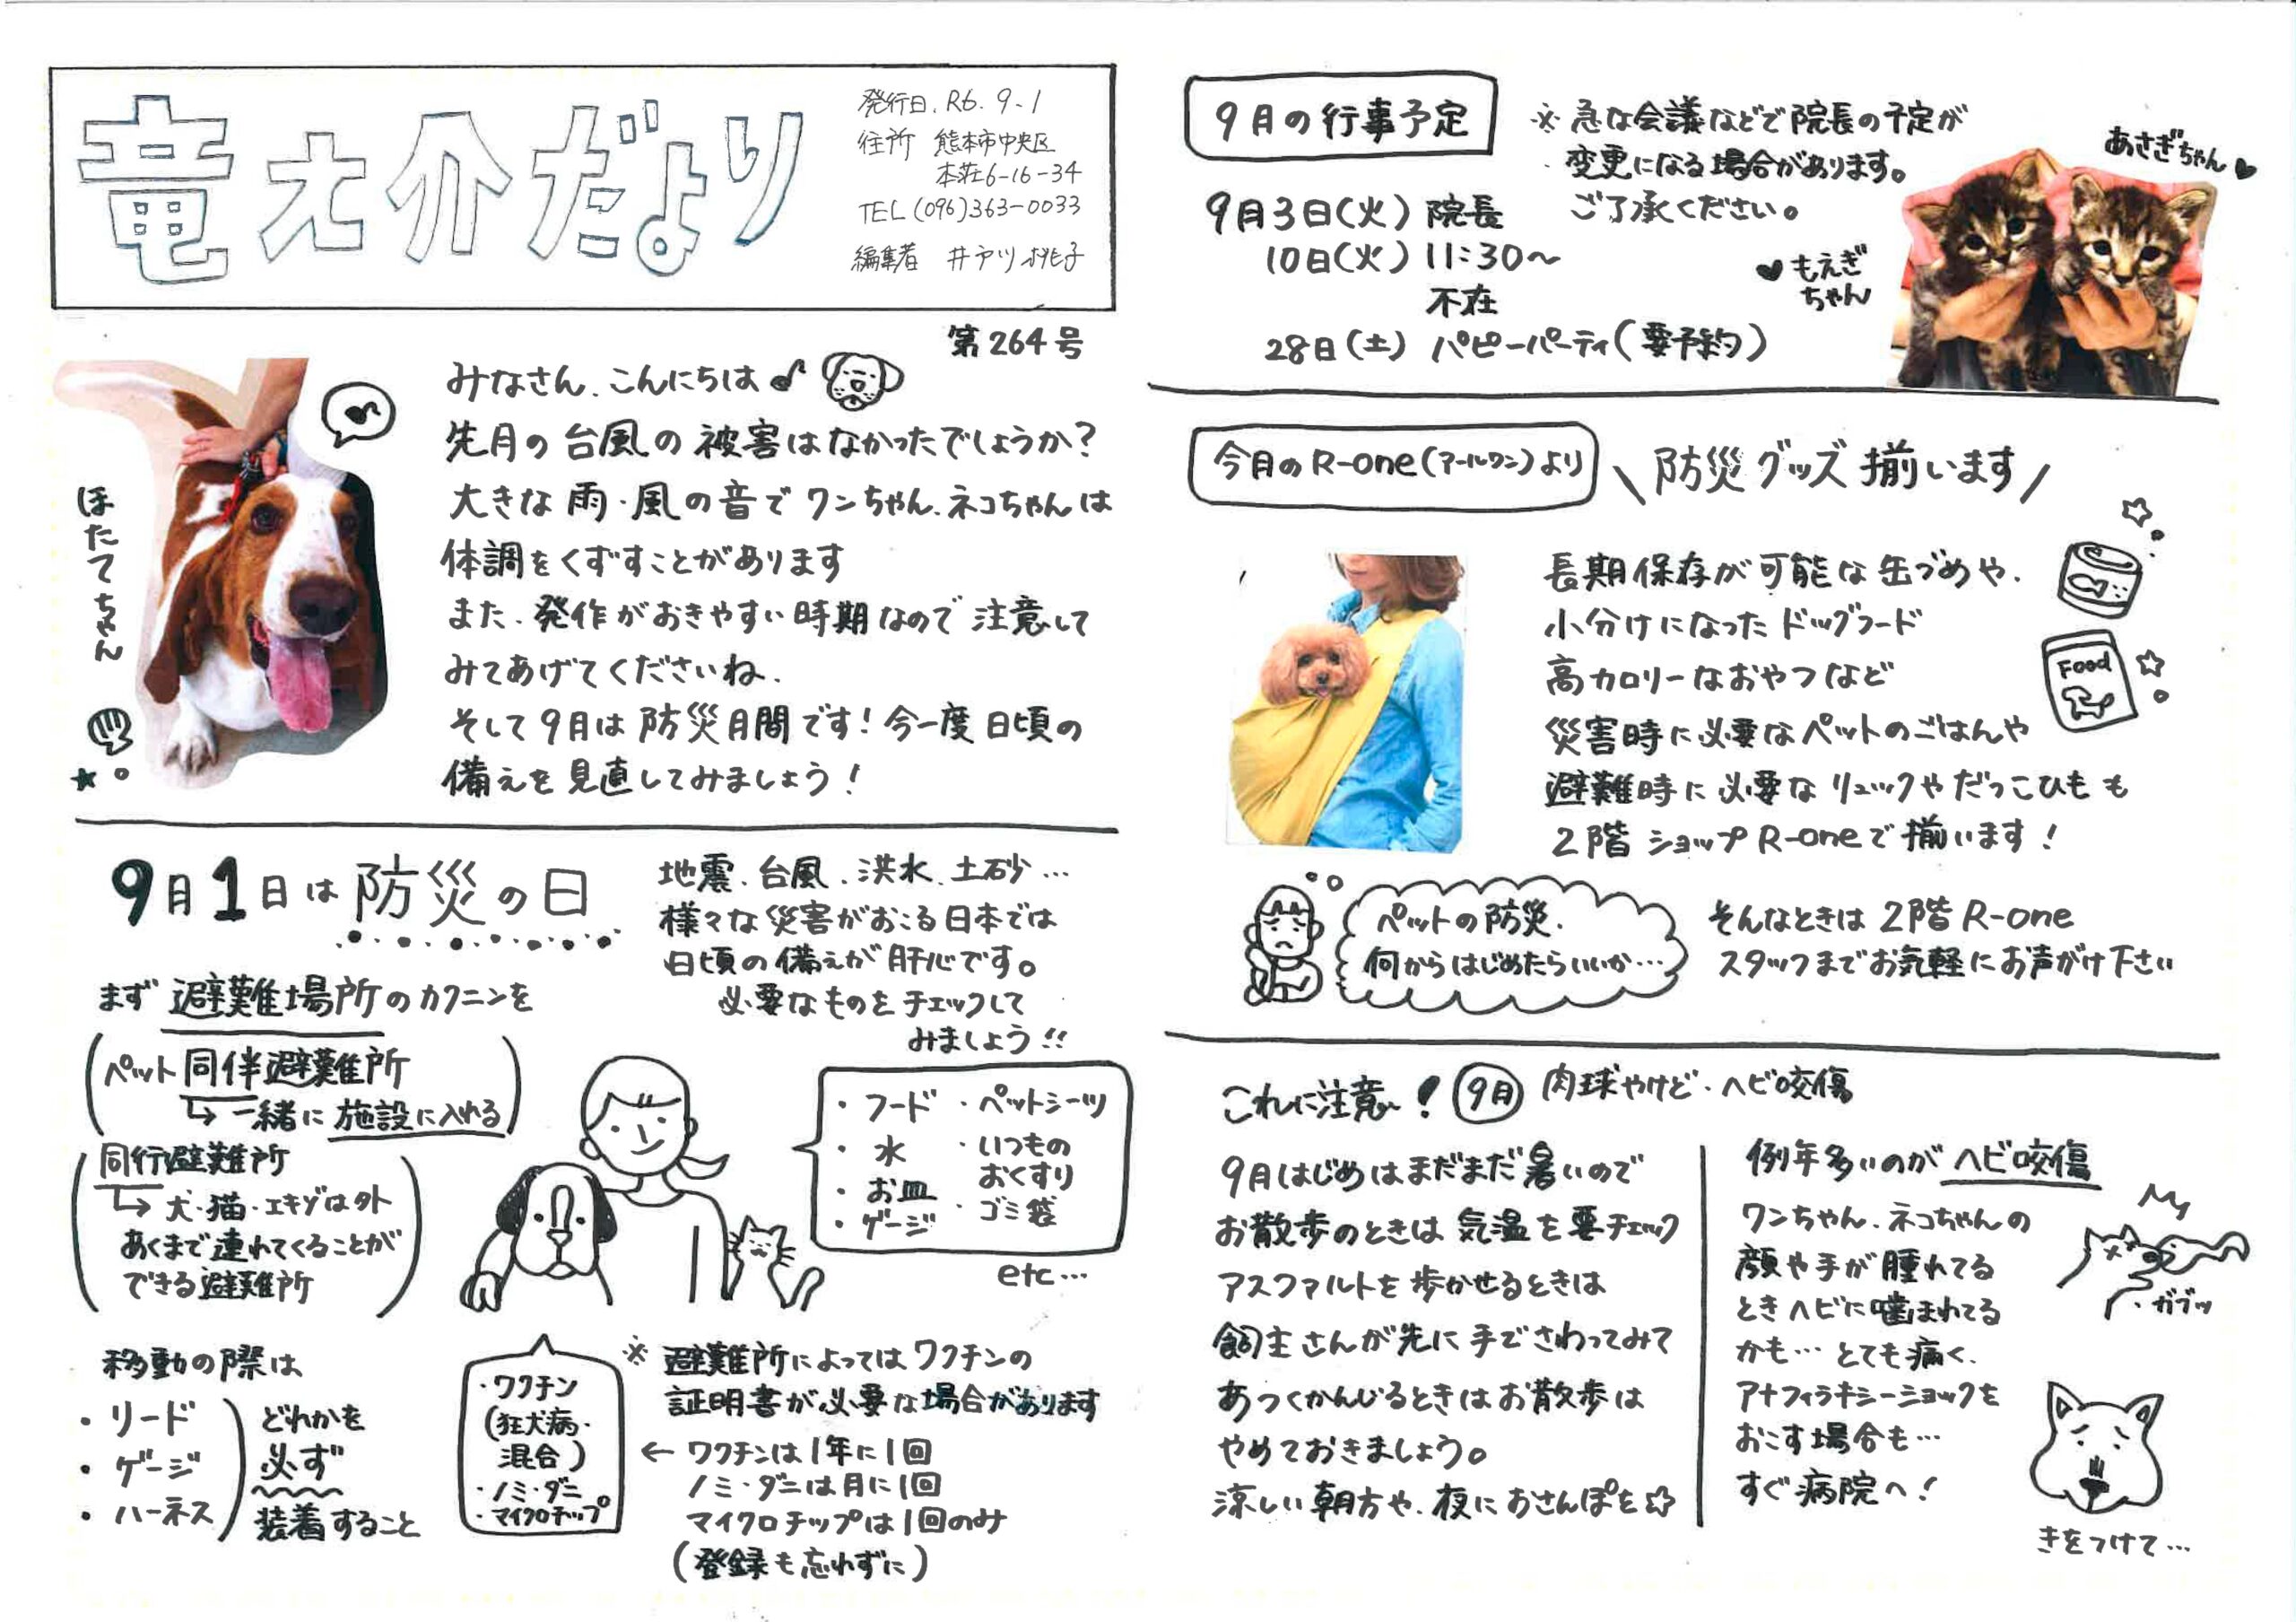 竜之介だより
発行日. R6. 9. 1
住所 熊本市中央区
本荘6-16-34
TEL (096)363-0033
編集者
第264号
みなさん、こんにちは♪
先月の台風の被害はなかったでしょうか?
大きな雨・風の音でワンちゃん、ネコちゃんは
体調をくずすことがあります
また、発作がおきやすい時期なので注意して
みてあげてくださいね、
そして9月は防災月間です!今一度日頃の
備えを見直してみましょう!
ほたてちゃん
9月1日は防災の日
地震、台風、洪水、土砂…
様々な災害がおこる日本では
日頃の備えが肝心です。
必要なものをチェックして
みましょう!!
まず避難場所のカクニンを
(ペット同伴避難所
→一緒に施設に入れる)
(同行避難所
→犬・猫・エキゾは外
あくまで連れてくることが
できる避難所)
・フード ・ペットシーツ
・水 ・いつもの
おくすり
・お皿
・ゲージ ・ゴミ袋
etc…
移動の際は
・リード
・ゲージ
・ハーネス
どれかを
必ず
装着すること
・ワクチン
(狂犬病・
混合)
・ノミ・ダニ
・マイクロチップ
※避難所によってはワクチンの
証明書が必要な場合があります
←ワクチンは1年に1回
ノミ・ダニは月に1回
マイクロチップは1回のみ
(登録も忘れずに)
9月の行事予定
※急な会議などで院長の予定が
変更になる場合があります。
ご了承ください。
9月3日(火) 院長
10日(火) 11:30〜
不在
28日(土) パピーパーティ(要予約)
あさぎちゃん♥
♥もえぎ
ちゃん
今月のR-one(アールワン)より
\防災グッズ揃います/
長期保存が可能な缶づめや、
小分けになったドッグフード
高カロリーなおやつなど
災害時に必要なペットのごはんや
避難時に必要なリュックやだっこひもも
2階ショップR-oneで揃います!
Food
ペットの防災、
何からはじめたらいいか…
そんなときは2階R-one
スタッフまでお気軽にお声がけ下さい
これに注意!9月 肉球やけど・ヘビ咬傷
9月はじめはまだまだ暑いので
お散歩のときは気温を要チェック
アスファルトを歩かせるときは
飼主さんが先に手でさわってみて
あつくかんじるときはお散歩は
やめておきましょう。
涼しい朝方や、夜におさんぽを☆
例年多いのがヘビ咬傷
ワンちゃん、ネコちゃんの
顔や手が腫れてる
ときヘビに噛まれてる
かも…とても痛く、
アナフィラキシーショックを
おこす場合も…
すぐ病院へ!
ガブッ
きをつけて…